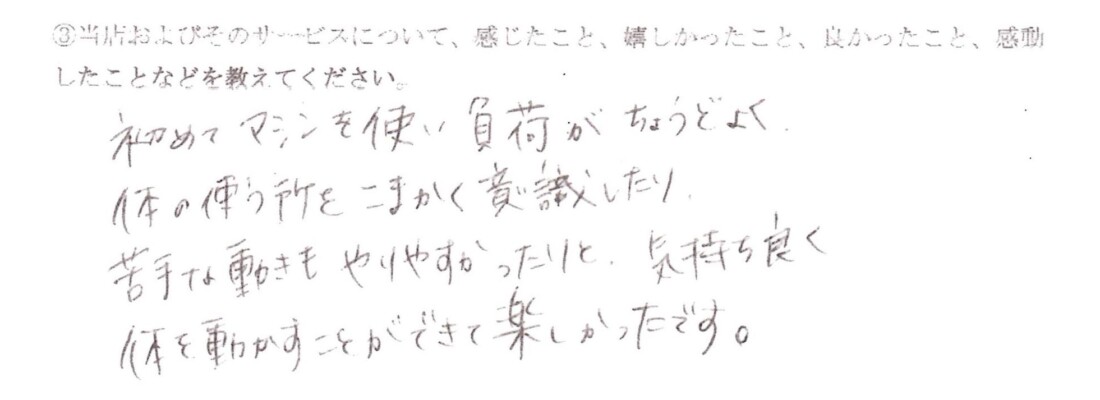 ③当店およびそのサービスについて、感じたこと、嬉しかったこと、良かったこと、感動
したことなどを教えてください。
初めて マシンを使い 負荷が ちょうどよく、
体の使う所を こまかく 意識したり、
苦手な動きも やりやすかったりと、気持ち良く
体を動かすことができて楽しかったです。